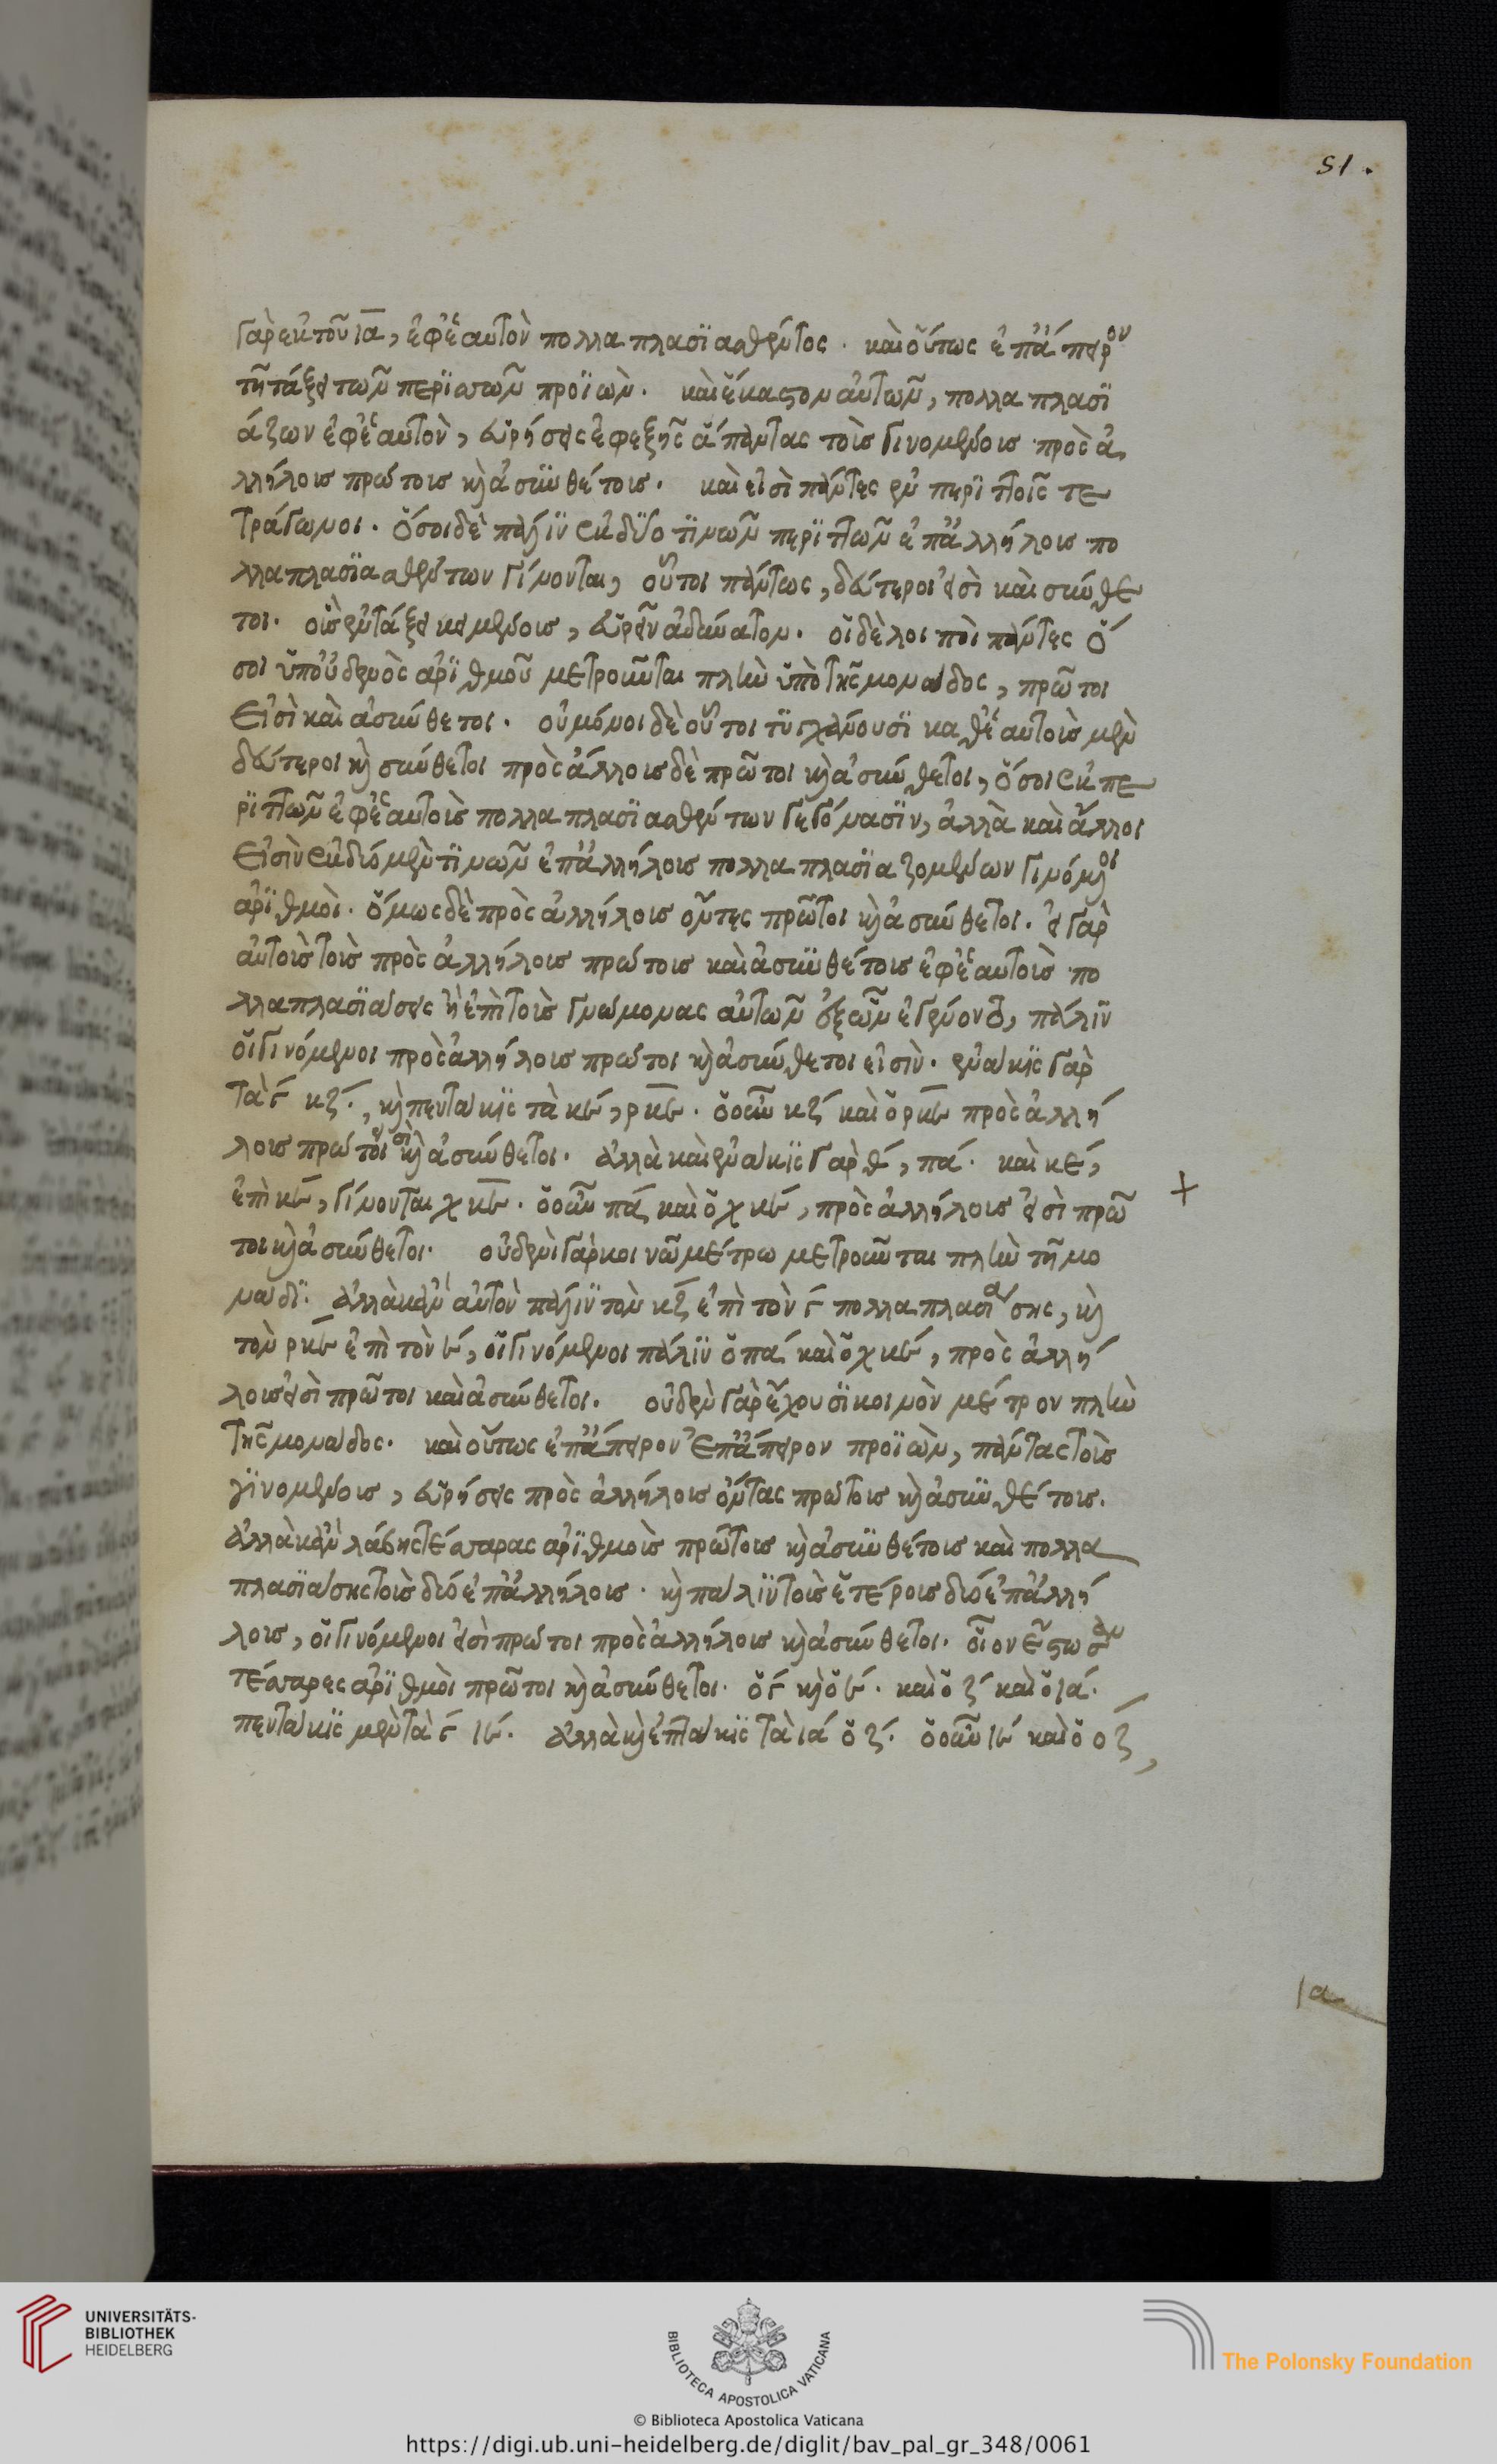 51.
γὰρ ἐκ τοῦ ια, ἐφ' ἑαυτὸν πολλαπλασιασθέντος. καὶ οὕτως ἐπ' ἄπειρον
τῇ τάξει τῶν περισσῶν προϊὼν. καὶ ἕκαστον αὐτῶν, πολλαπλασϊ
άζων ἐφ' ἑαυτὸν, εὑρήσεις ἐφεξῆς ἅπαντας τοὺς γινομένους πρὸς ἀ
λλήλους πρώτους κ ἀσυνθέτους. καὶ εἰσὶ πάντες ἐν περιττοῖς τε
τράγωνοι. ὅσοι δὲ πάλιν ἐκ δύο τινῶν περιττῶν ἐπ' ἀλλήλους πο
λλαπλασιασθέντων γίνονται, οὗτοι πάντως, δεύτεροι εἰσὶ καὶ σύνθε
τοι. οὓς ἐν τάξει κειμένους, εὑρεῖν ἀδύνατον. οἱ δὲ λοιποὶ πάντες ὅ
σοι ὑπ' οὐδενὸς ἀριθμοῦ μετροῦνται πλὴν ὑπὸ τῆς μονάδος, πρῶτοι
εἰσὶ καὶ ἀσύνθετοι. οὐ μόνοι δὲ οὗτοι τυγχάνουσι καθ' ἑαυτοὺς μὲν
δεύτεροι κ σύνθετοι πρὸς ἄλλους δὲ πρῶτοι κ ἀσύνθετοι, ὅσοι ἐκ πε
ριττῶν ἐφ' ἑαυτοὺς πολλαπλασιασθέντων γεγόνασιν, ἀλλὰ καὶ ἄλλοι
εἰσὶν ἐκ δύο μὲν τινῶν ἐπ' ἀλλήλους πολλαπλασιαζομένων γινόμενοι
ἀριθμοὶ. ὅμως δὲ πρὸς ἀλλήλους ὄντες πρῶτοι κ ἀσύνθετοι. εἰ γὰρ
αὐτοὺς τοὺς πρὸς ἀλλήλους πρώτους καὶ ἀσυνθέτους ἐφ' ἑαυτοὺς πο
λλαπλασιάσεις ἢ ἐπὶ τοὺς γνώμονας αὐτῶν ἐξ ὧν ἐγένοντο, πάλιν
οἱ γινόμενοι πρὸς ἀλλήλους πρῶτοι κ ἀσύνθετοι εἰσὶν. ἐνάκις γὰρ
τὰ γ κζ, κ πεντάκις τὰ κε, ρκε. ὁ οὖν κζ καὶ ὁ ρκε πρὸς ἀλλή
λους πρῶτοι εἰσὶ κ ἀσύνθετοι. ἀλλὰ καὶ ἐνάκις γὰρ θ, πα. καὶ κε,
ἐπὶ κε, γίνονται χκε. ὁ οὖν πα καὶ ὁ χκε, πρὸς ἀλλήλους εἰσὶ πρῶ
τοι κ ἀσύνθετοι. οὐδενὶ γὰρ κοινῷ μέτρῳ μετροῦνται πλὴν τῇ μο
νάδι. ἀλλὰ κἂν αὐτὸν πάλιν τὸν κζ ἐπὶ τὸν γ πολλαπλασιάσῃς, κ
τὸν ρκε ἐπὶ τὸν ε, οἱ γινόμενοι πάλιν ὁ πα καὶ ὁ χκε, πρὸς ἀλλή
λους εἰσὶ πρῶτοι καὶ ἀσύνθετοι. οὐδὲν γὰρ ἔχουσι κοινὸν μέτρον πλὴν
τῆς μονάδος. καὶ οὕτως ἐπ' ἄπειρον ἐπ' ἄπειρον προϊὼν, πάντας τοὺς
γινομένους, εὑρήσεις πρὸς ἀλλήλους ὄντας πρώτους κ ἀσυνθέτους.
ἀλλὰ κἂν λάβῃς τέσσαρας ἀριθμοὺς πρώτους κ ἀσυνθέτους καὶ πολλα
πλασιάσῃς τοὺς δύο ἐπ' ἀλλήλους. κ πάλιν τοὺς ἑτέρους δύο ἐπ' ἀλλή
λους, οἱ γινόμενοι εἰσὶ πρῶτοι πρὸς ἀλλήλους κ ἀσύνθετοι. οἷον ἔστωσαν
τέσσαρες ἀριθμοὶ πρῶτοι κ ἀσύνθετοι. ὁ γ κ ὁ ε. καὶ ὁ ζ καὶ ὁ ια.
πεντάκις μὲν τὰ γ ιε. ἀλλὰ κ ἑπτάκις τὰ ια οζ. ὁ οὖν ιε καὶ ὁ οζ,
+
ια
UNIVERSITÄTS-
BIBLIOTHEK
HEIDELBERG
BIBLIOTECA APOSTOLICA VATICANA
The Polonsky Foundation
© Biblioteca Apostolica Vaticana
https://digi.ub.uni-heidelberg.de/diglit/bav_pal_gr_348/0061